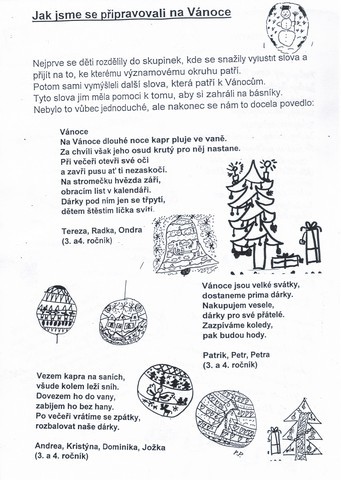 Jak jsme se připravovali na Vánoce
Nejprve se děti rozdělily do skupinek, kde se snažily vyluštit slova a
přijít na to, ke kterému významovému okruhu patří.
Potom sami vymýšleli další slova, která patří k Vánocům.
Tyto slova jim měla pomoci k tomu, aby si zahráli na básníky.
Nebylo to vůbec jednoduché, ale nakonec se nám to docela povedlo:
Vánoce
Na Vánoce dlouhé noce kapr pluje ve vaně.
Za chvíli však jeho osud krutý pro něj nastane.
Při večeři otevři své oči
a zavři pusu ať ti nezaskočí.
Na stromečku hvězda září,
obracím list v kalendáři.
Dárky pod ním jen se třpytí,
dětem štěstím líčka svítí.
Tereza, Radka, Ondra
(3. a4. ročník)
Vánoce jsou velké svátky,
dostaneme prima dárky.
Nakupujem vesele,
dárky pro své přátelé.
Zazpíváme koledy,
pak budou hody.
Patrik, Petr, Petra
(3. a 4. ročník)
Vezem kapra na saních,
všude kolem leží sníh.
Dovezem ho do vany,
zabijem ho bez hany.
Po večeři vrátíme se zpátky,
rozbalovat naše dárky.
Andrea, Kristýna, Dominika, Jožka
(3. a 4. ročník)
P.P.